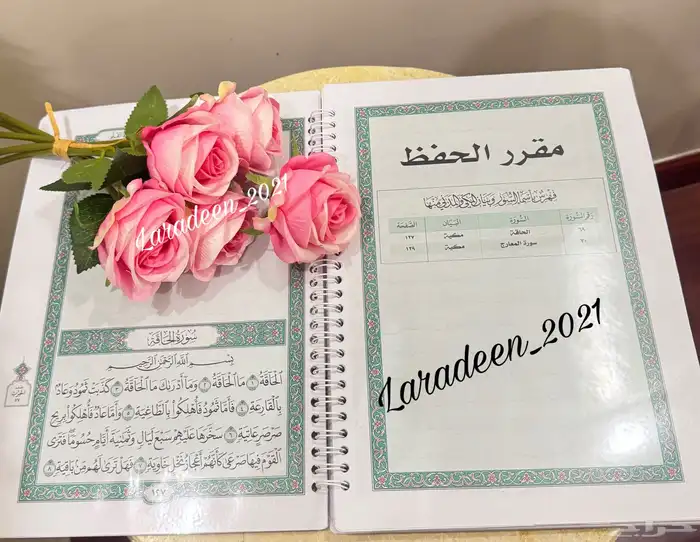 مقرر الحفظ
فهرس بأسماء السور وبيان المكي والمدني منها
رقم السورة السورة البيان الصفحة
٦٩ الحاقة مكية ١٢٧
٧٠ سورة المعارج مكية ١٢٩
Laradeen_2021
Laradeen_2021
سورة الحاقة
بسم الله الرحمن الرحيم
الحاقة ١ ما الحاقة ٢ وما أدراك ما الحاقة ٣ كذبت ثمود وعاد
بالقارعة ٤ فأما ثمود فأهلكوا بالطاغية ٥ وأما عاد فأهلكوا بريح
صرصر عاتية ٦ سخرها عليهم سبع ليال وثمانية أيام حسوما فترى
القوم فيها صرعى كأنهم أعجاز نخل خاوية ٧ فهل ترى لهم من باقية ٨
١٢٧
حراج